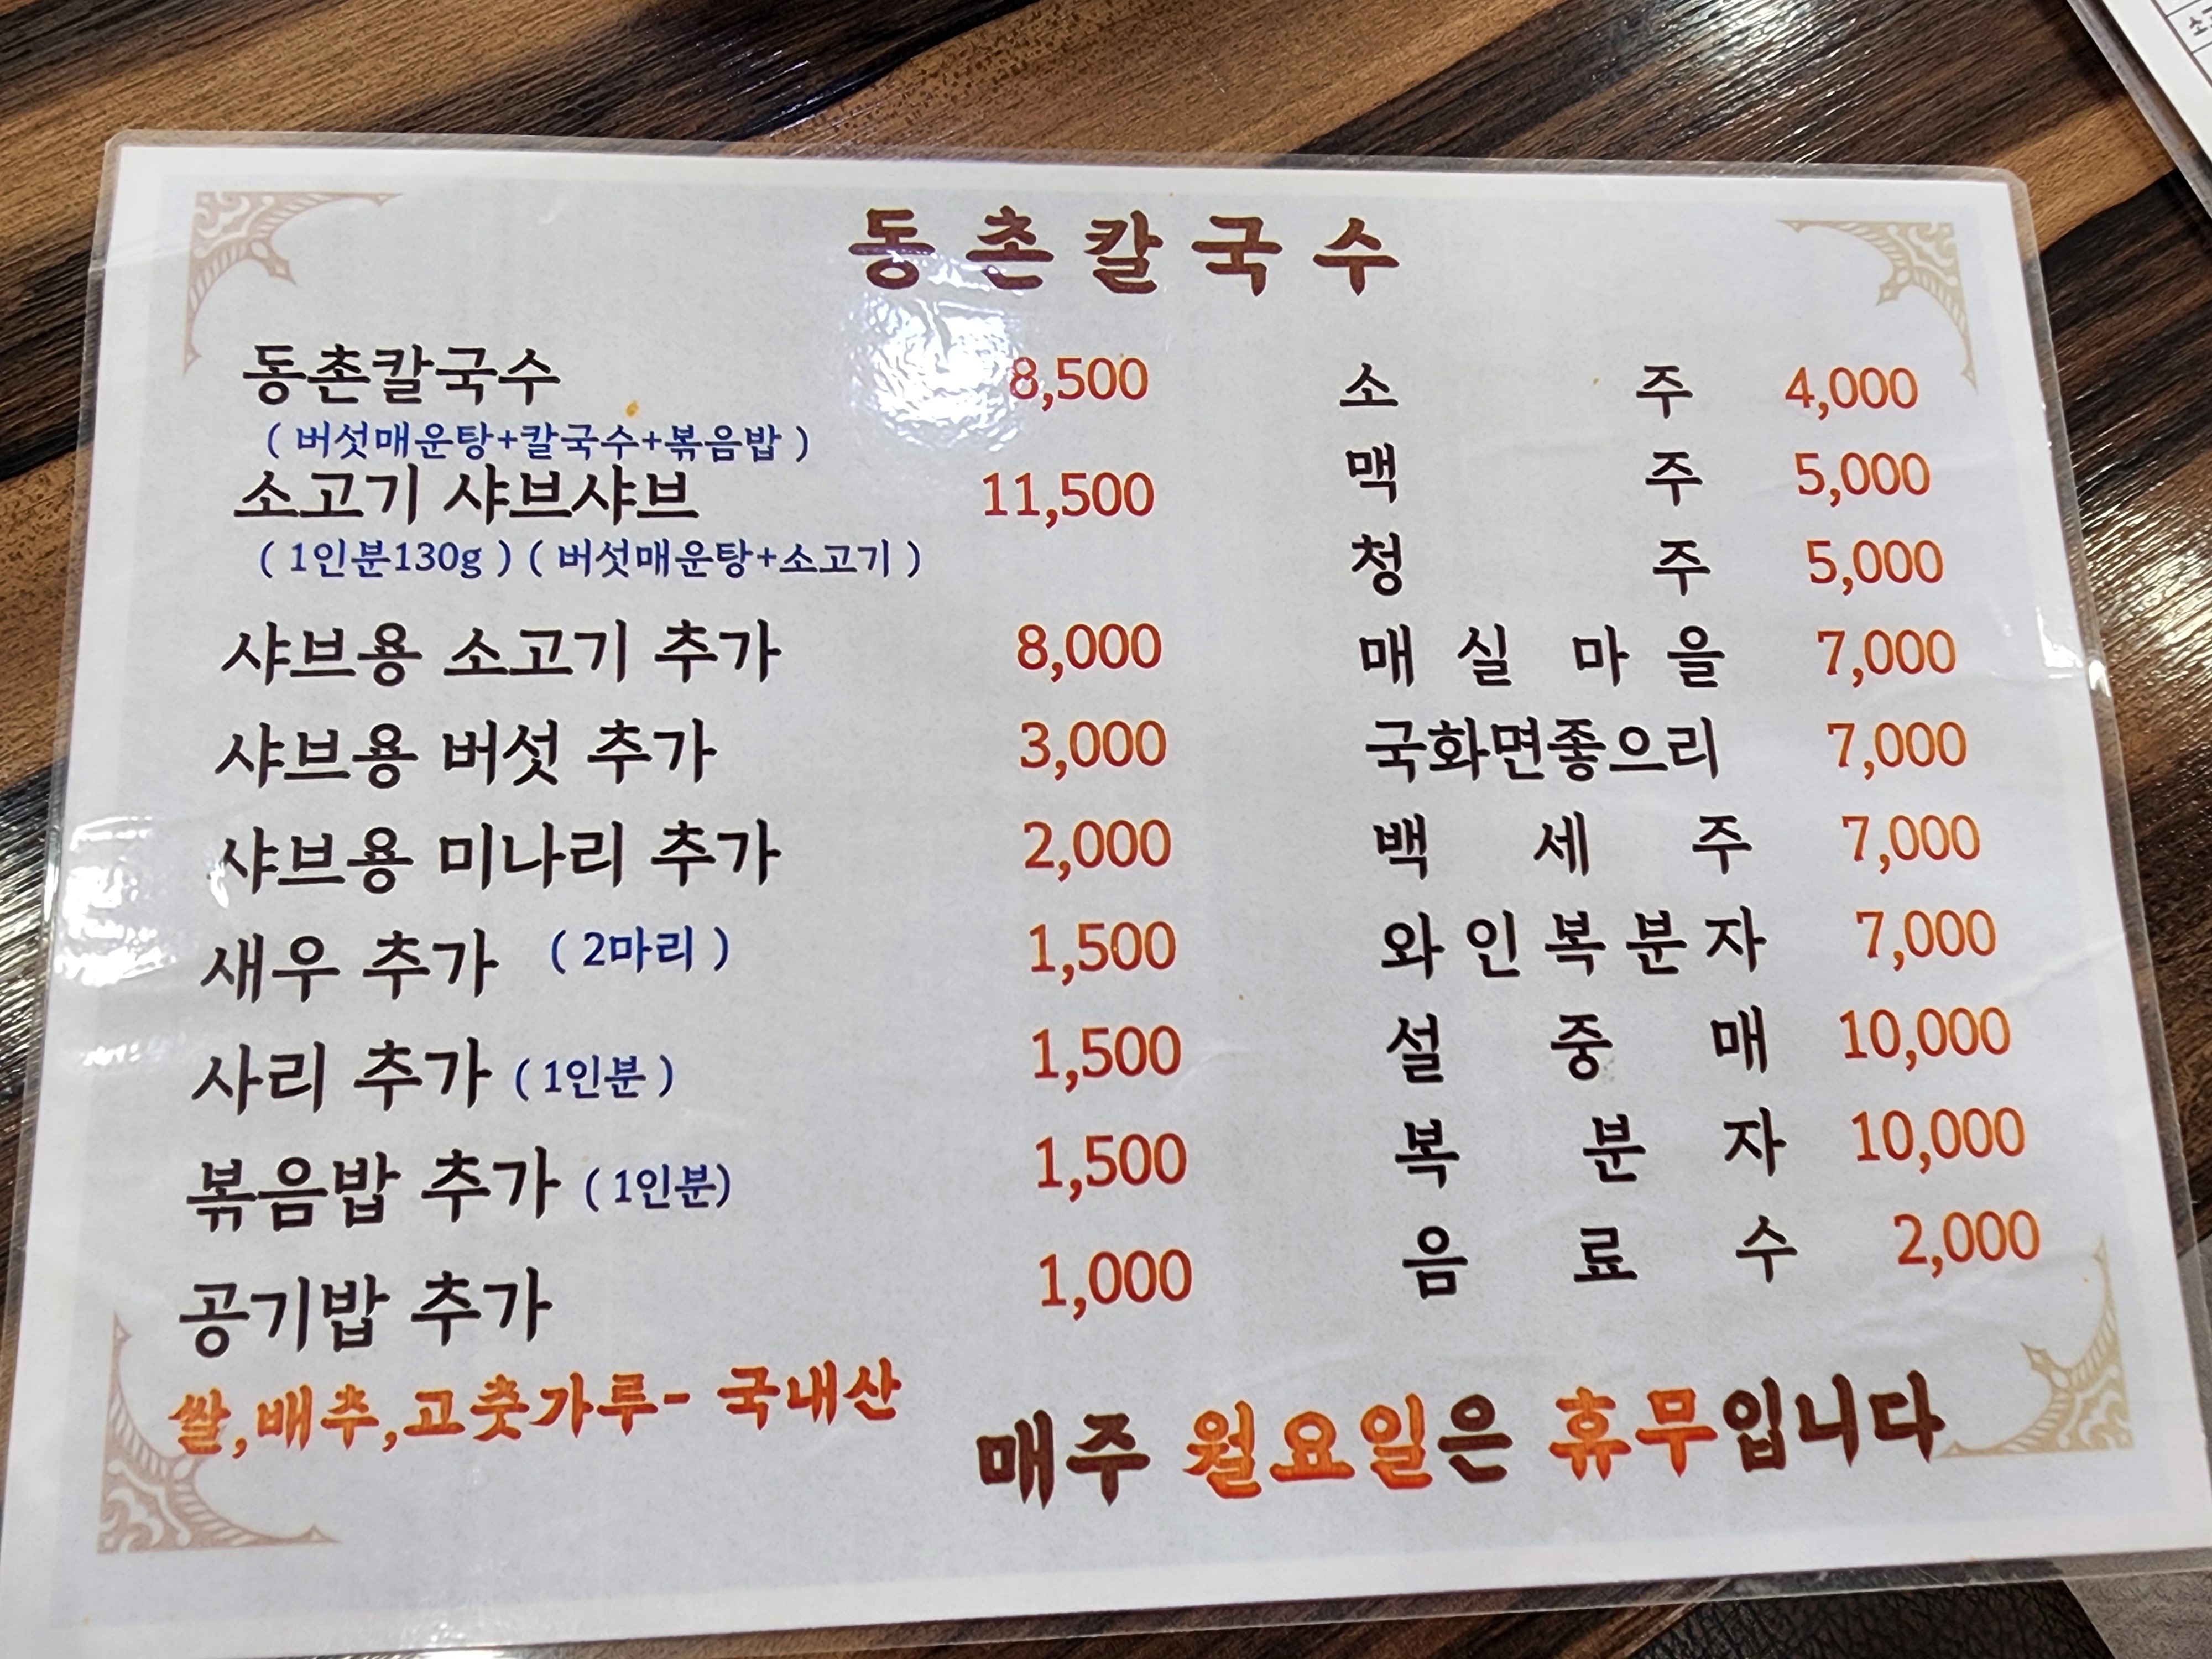 동촌칼국수
동촌칼국수 8,500
( 버섯매운탕+칼국수+볶음밥 )
소고기 샤브샤브 11,500
( 1인분130g ) ( 버섯매운탕+소고기 )
샤브용 소고기 추가 8,000
샤브용 버섯 추가 3,000
샤브용 미나리 추가 2,000
새우 추가 ( 2마리 ) 1,500
사리 추가 ( 1인분 ) 1,500
볶음밥 추가 ( 1인분) 1,500
공기밥 추가 1,000
쌀,배추,고춧가루- 국내산
소 주 4,000
맥 주 5,000
청 주 5,000
매 실 마 을 7,000
국화면좋으리 7,000
백 세 주 7,000
와 인 복 분 자 7,000
설 중 매 10,000
복 분 자 10,000
음 료 수 2,000
매주 월요일은 휴무입니다